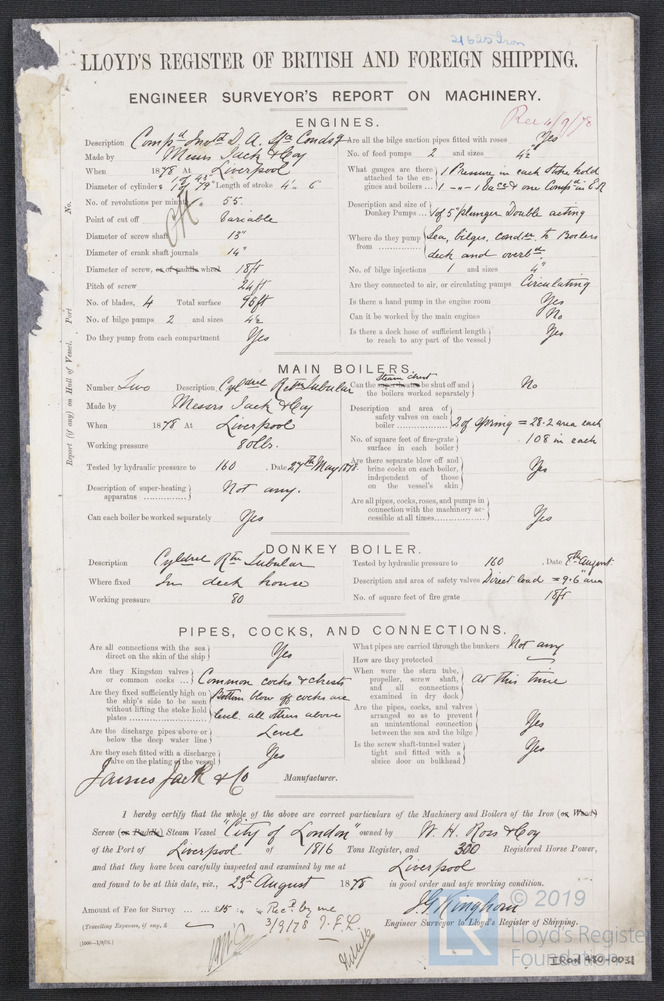 21625 Iron
LLOYD'S REGISTER OF BRITISH AND FOREIGN SHIPPING.
ENGINEER SURVEYOR'S REPORT ON MACHINERY.
Rec 4/9/78
ENGINES.
Description Compd Invtd D. A. Sce Condsg
Made by Messrs Jack & Coy
When 1878 At Liverpool
Diameter of cylinders 1 of 45" 1 of 79" Length of stroke 4'-6
No. of revolutions per minute 55
Point of cut off Variable
Diameter of screw shaft 13"
Diameter of crank shaft journals 14"
Diameter of screw, or of paddle wheel 18ft
Pitch of screw 24ft
No. of blades, 4 Total surface 96ft
No. of bilge pumps 2 and sizes 4½
Do they pump from each compartment Yes
Are all the bilge suction pipes fitted with roses Yes
No. of feed pumps 2 and sizes 4½
What gauges are there attached to the engines and boilers ... 1 Pressure in each Stoke hold
1 -"- 1 Vacc & one Compd in E.R
Description and size of Donkey Pumps ... 1 of 5" plunger Double acting
Where do they pump from Sea, bilges, condsr to Boilers
deck and overbd
No. of bilge injections 1 and sizes 4"
Are they connected to air, or circulating pumps Circulating
Is there a hand pump in the engine room Yes
Can it be worked by the main engines No
Is there a deck hose of sufficient length to reach to any part of the vessel Yes
Report (if any) on Hull of Vessel. Port No.
MAIN BOILERS.
Number Two Description Cyldrel Retn Tubular
Made by Messrs Jack & Coy
When 1878 At Liverpool
Working pressure 80 lbs.
Tested by hydraulic pressure to 160. Date 27th May 1878.
Description of super-heating apparatus Not any.
Can each boiler be worked separately Yes
Can the steam chest super-heater be shut off and the boilers worked separately No
Description and area of safety valves on each boiler 2 of Spring = 28.2 area each
No. of square feet of fire-grate surface in each boiler 108 in each
Are there separate blow off and brine cocks on each boiler, independent of those on the vessel's skin Yes
Are all pipes, cocks, roses, and pumps in connection with the machinery accessible at all times Yes
DONKEY BOILER.
Description Cyldrel Rtn Tubular
Where fixed In deck house
Working pressure 80
Tested by hydraulic pressure to 160. Date 8th August
Description and area of safety valves Direct load = 9.6" area
No. of square feet of fire grate 18ft
PIPES, COCKS, AND CONNECTIONS.
Are all connections with the sea direct on the skin of the ship Yes
Are they Kingston valves or common cocks ... Common cocks & chests
Are they fixed sufficiently high on the ship's side to be seen without lifting the stoke hold plates Bottom blow off cocks are
level all others above
Are the discharge pipes above or below the deep water line Level
Are they each fitted with a discharge valve on the plating of the vessel Yes
What pipes are carried through the bunkers Not any
How are they protected
When were the stern tube, propeller, screw shaft, and all connections examined in dry dock At this time
Are the pipes, cocks, and valves arranged so as to prevent an unintentional connection between the sea and the bilge Yes
Is the screw shaft-tunnel water tight and fitted with a sluice door on bulkhead Yes
James Jack & Co Manufacturer.
I hereby certify that the whole of the above are correct particulars of the Machinery and Boilers of the Iron (or Wood)
Screw (or Paddle) Steam Vessel "City of London" owned by W. H. Ross & Coy
of the Port of Liverpool of 1816 Tons Register, and 300 Registered Horse Power,
and that they have been carefully inspected and examined by me at Liverpool
and found to be at this date, viz., 23rd August 1878 in good order and safe working condition.
Amount of Fee for Survey ... ... £15 : " " Recd by me
(Travelling Expenses, if any, £ 3/9/78 J.F.L.
J. G. Kinghorn
Engineer Surveyor to Lloyd's Register of Shipping.
© 2019
Lloyd's Register
Foundation
IRON 480-0031